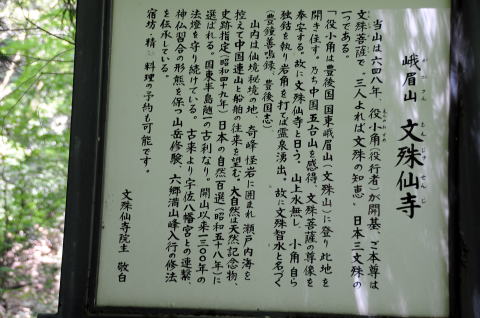 峨眉山 文殊仙寺
がびさん もんじゅせんじ
当山は六四八年、役小角(役行者)が開基、ご本尊は
文殊菩薩で、三人よれば文殊の知恵、日本三文殊の
一つである。
「役小角は豊後国国東峨眉山(文殊山)に登り此地を
開き住す。乃ち中国五台山を感得、文殊菩薩の尊像を
奉安する。故に文殊仙寺と曰う。山上水無し、小角自ら
独鈷を執り岩角を打てば霊泉湧出。故に文殊智水と名づく
(豊鐘善鳴録、豊後国志)
山内は仙境秘境の地、奇峰怪岩に囲まれ瀬戸内海を
控えて中国連山と船舶の往来を望む。大自然は天然記念物、
史跡指定(昭和四十九年)日本の自然百選(昭和五十八年)に
選ばれる。国東半島随一の古刹なり。開山以来一三〇〇年の
法燈を守り続けている。古来より宇佐八幡宮との連繋、
神仏習合の形態を保つ山岳修験、六郷満山峰入行の修法
を伝承している。
宿坊・精 料理の予約も可能です。
文殊仙寺院主 敬白